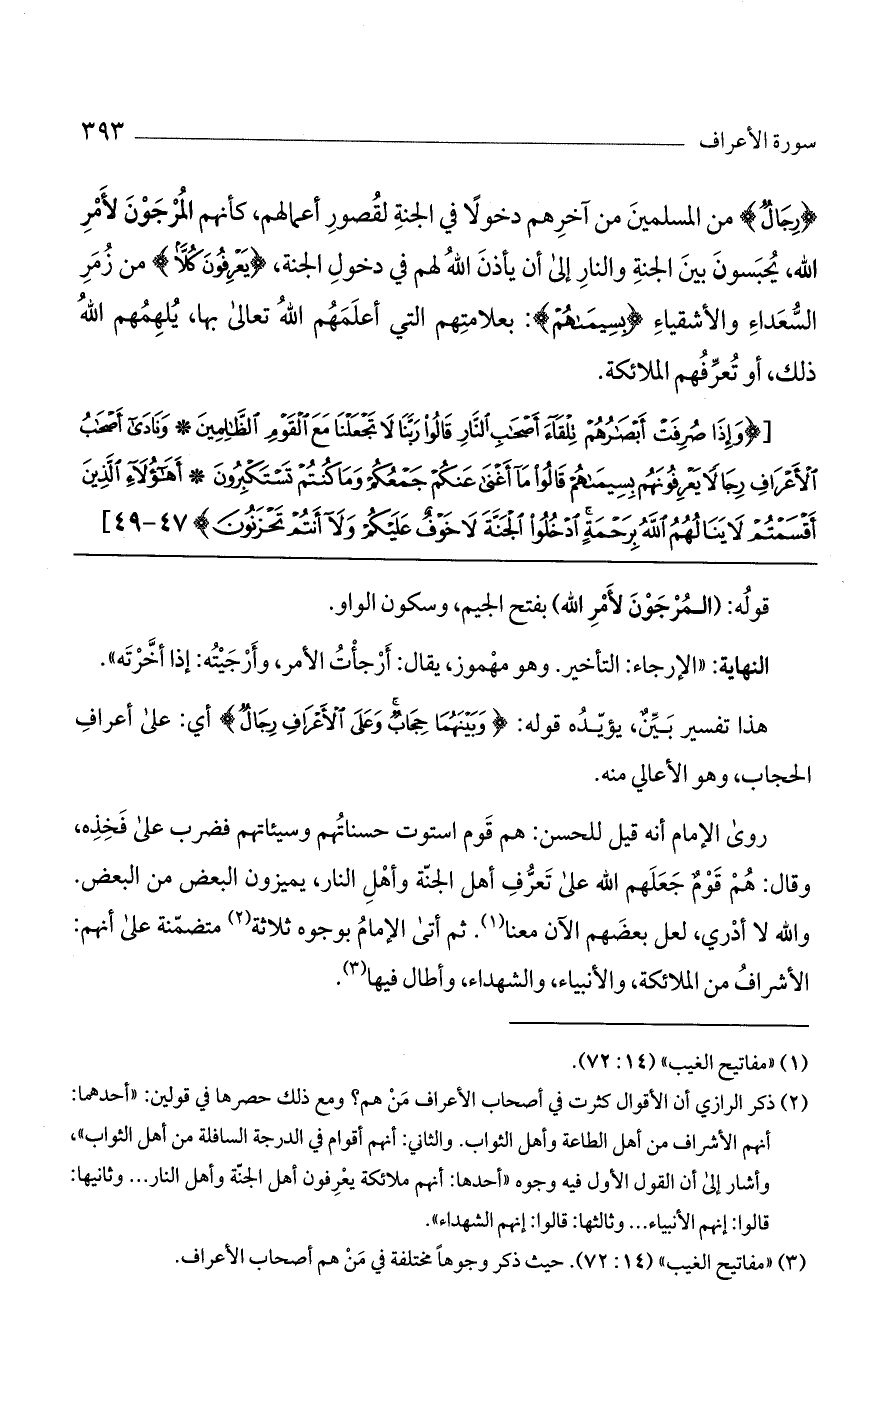 سورة الأعراف ٣٩٣
﴿رِجَالٌ﴾ من المسلمينَ من آخرِهم دخولًا في الجنةِ لقُصورِ أعمالهم، كأنهم المُرْجَوْنَ لأَمْرِ
الله، يُحبَسونَ بينَ الجنةِ والنارِ إلىٰ أن يأذنَ اللهُ لهم في دخولِ الجنة، ﴿يَعْرِفُونَ كُلًّا﴾ من زُمَرِ
السُّعَداءِ والأشقياءِ ﴿بِسِيمَىٰهُمْ﴾: بعلامتِهم التي أعلَمَهُم اللهُ تعالىٰ بها، يُلهِمُهم اللهُ
ذلك، أو تُعرِّفُهم الملائكة.
[﴿وَإِذَا صُرِفَتْ أَبْصَٰرُهُمْ تِلْقَآءَ أَصْحَٰبِ ٱلنَّارِ قَالُوا۟ رَبَّنَا لَا تَجْعَلْنَا مَعَ ٱلْقَوْمِ ٱلظَّٰلِمِينَ * وَنَادَىٰٓ أَصْحَٰبُ
ٱلْأَعْرَافِ رِجَالًا يَعْرِفُونَهُم بِسِيمَىٰهُمْ قَالُوا۟ مَآ أَغْنَىٰ عَنكُمْ جَمْعُكُمْ وَمَا كُنتُمْ تَسْتَكْبِرُونَ * أَهَٰٓؤُلَآءِ ٱلَّذِينَ
أَقْسَمْتُمْ لَا يَنَالُهُمُ ٱللَّهُ بِرَحْمَةٍ ۚ ٱدْخُلُوا۟ ٱلْجَنَّةَ لَا خَوْفٌ عَلَيْكُمْ وَلَآ أَنتُمْ تَحْزَنُونَ﴾ ٤٧-٤٩]
قولُه: (المُرْجَوْنَ لأَمْرِ الله) بفتح الجيم، وسكون الواو.
النهاية: «الإرجاء: التأخير. وهو مهْموز، يقال: أَرْجأْتُ الأمر، وأَرْجَيْتُه: إذا أخَّرْتَه».
هذا تفسير بَـيِّنٌ، يؤيّـدُه قوله: ﴿وَبَيْنَهُمَا حِجَابٌ ۚ وَعَلَى ٱلْأَعْرَافِ رِجَالٌ﴾ أي: علىٰ أعرافِ
الحجاب، وهو الأعالي منه.
روىٰ الإمام أنه قيل للحسن: هم قَوم استوت حسناتُهم وسيئاتهم فضرب علىٰ فَخِذِه،
وقال: هُمْ قَوْمٌ جَعَلَهم الله علىٰ تَعرُّفِ أهل الجنّة وأهْلِ النار، يميزون البعض من البعض.
والله لا أدْري، لعل بعضَهم الآن معنا(١). ثم أتىٰ الإمامُ بوجوه ثلاثة(٢) متضمّنة علىٰ أنهم:
الأشرافُ من الملائكة، والأنبياء، والشهداء، وأطال فيها(٣).
(١) «مفاتيح الغيب» (١٤: ٧٢).
(٢) ذكر الرازي أن الأقوال كثرت في أصحاب الأعراف مَنْ هم؟ ومع ذلك حصرها في قولين: «أحدهما:
أنهم الأشراف من أهل الطاعة وأهل الثواب. والثاني: أنهم أقوام في الدرجة السافلة من أهل الثواب»،
وأشار إلىٰ أن القول الأول فيه وجوه «أحدها: أنهم ملائكة يعْرِفون أهل الجنّة وأهل النار... وثانيها:
قالوا: إنهم الأنبياء... وثالثها: قالوا: إنهم الشهداء».
(٣) «مفاتيح الغيب» (١٤: ٧٢). حيث ذكر وجوهاً مختلفة في مَنْ هم أصحاب الأعراف.